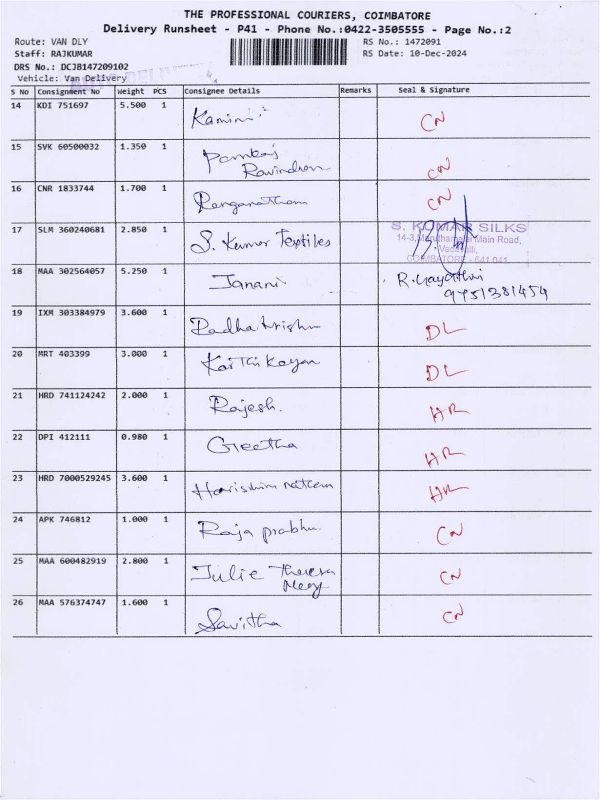 THE PROFESSIONAL COURIERS, COIMBATORE
Delivery Runsheet - P41 - Phone No.:0422-3505555 - Page No.:2
Route: VAN DLY
RS No.: 1472091
Staff: RAJKUMAR
RS Date: 10-Dec-2024
DRS No.: DCJB147209102
Vehicle: Van Delivery
S No Consignment No Weight PCS Consignee Details Remarks Seal & Signature
14 KDI 751697 5.500 1 Kamini CN
15 SVK 60500032 1.350 1 Pankaj
Ravindran CN
16 CNR 1833744 1.700 1 Ranganatham CN
17 SLM 360240681 2.850 1 S. Kumar Textiles
S. KUMAR SILKS
Main Road,
COIMBATORE - 641 041.
18 MAA 302564057 5.250 1 Janani R. Gayathri
9751381454
19 IXM 303384979 3.600 1 DL
20 MRT 403399 3.000 1 Karthikeyan DL
21 HRD 741124242 2.000 1 Rajesh. HR
22 DPI 412111 0.980 1 Geetha HR
23 HRD 7000529245 3.600 1 HR
24 APK 746812 1.000 1 Raja prabhu. CN
25 MAA 600482919 2.800 1 Julie Theresa
Mary CN
26 MAA 576374747 1.600 1 Savitha CN